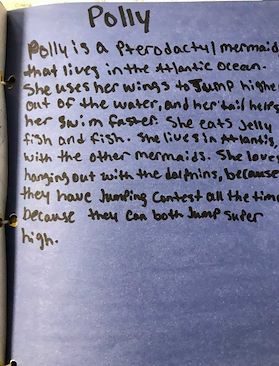 Polly
Polly is a Pterodactyl mermaid
that lives in the Atlantic Ocean.
She uses her wings to Jump highe
out of the water, and her tail helps
her swim faster. She eats Jelly
fish and fish. She lives in Atlantis,
with the other mermaids. She love
hanging out with the dolphins, because
they have Jumping Contest all the time
because they can both Jump super
high.